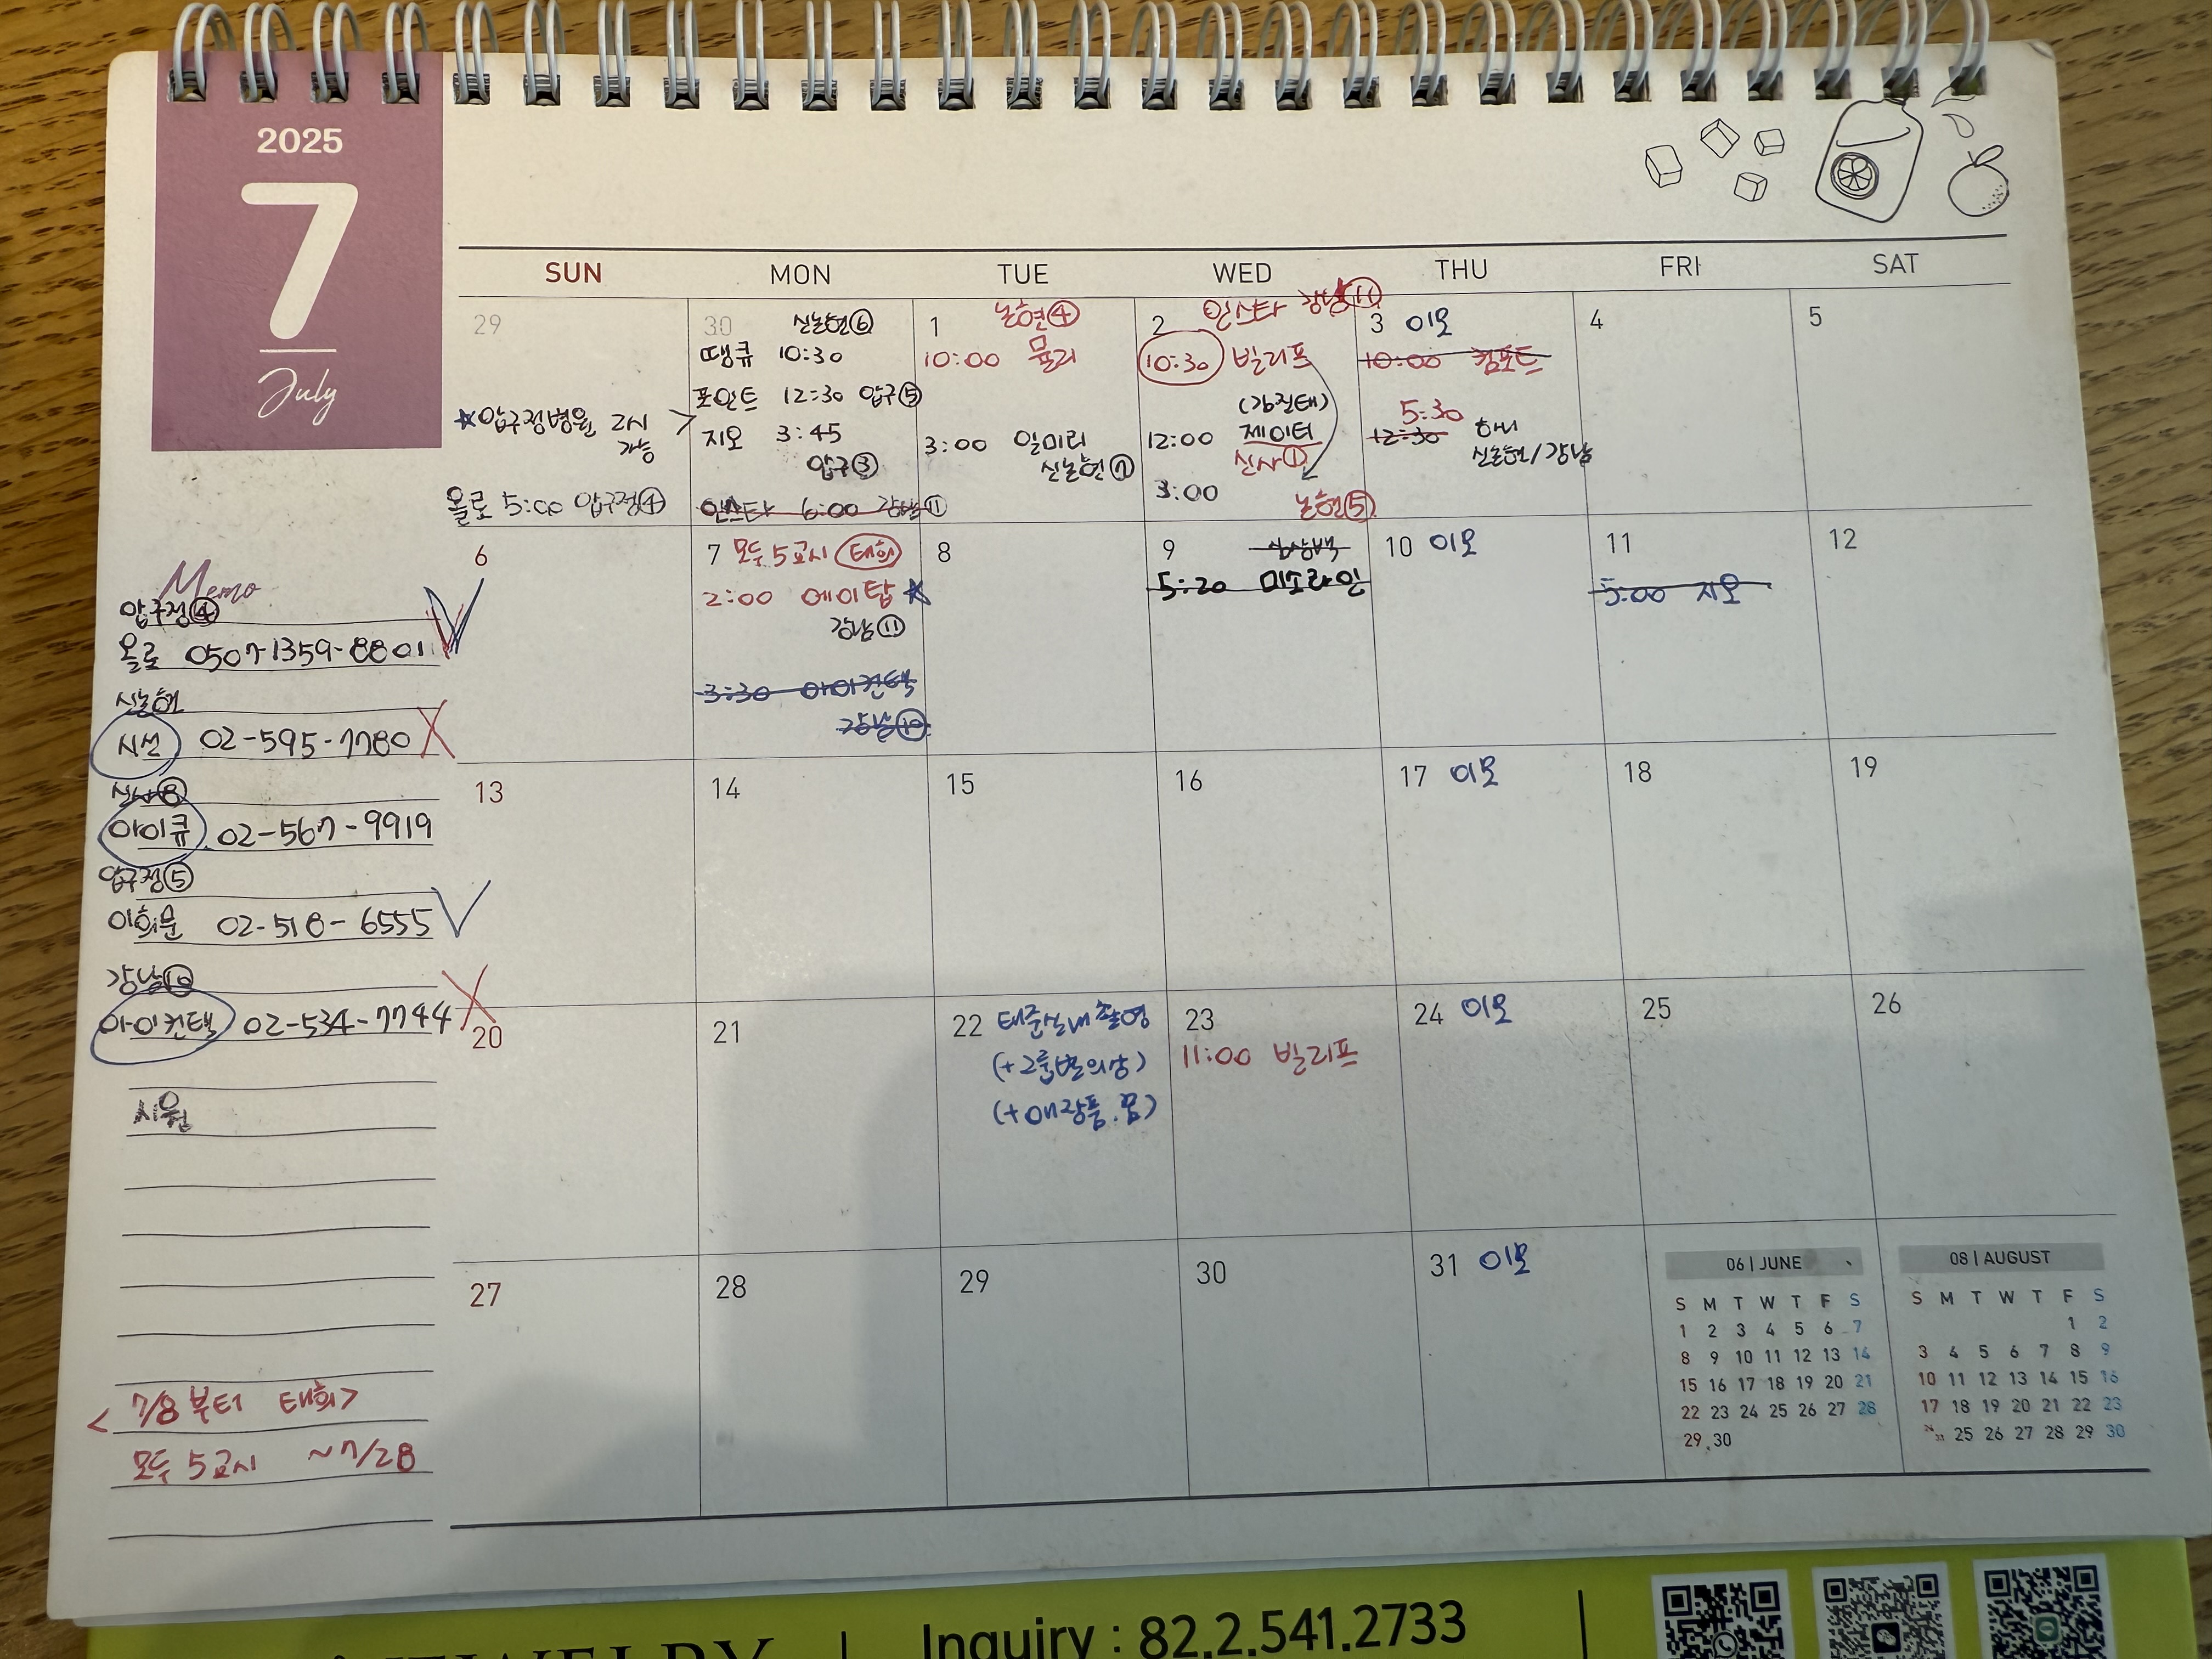 2025
7
July
SUN MON TUE WED THU FRI SAT
29
★압구정병원 2시
가능
올로 5:00 압구정④
30 신논현⑥
땡큐 10:30
포인트 12:30 압구⑤
지오 3:45
압구③
인스타 6:00 강남⑪
1 논현④
10:00 뮬리
3:00 일미리
신논현⑦
2 인스타 강남⑪
10:30 빌리프
12:00 제이터
신사①
3:00
논현⑤
3 이모
10:00 컴포트
5:30
12:30 하니
신논현/강남
4
5
6
7 모두 5교시 태희
2:00 에이탑 ★
강남⑪
3:30 아이컨택
강남⑩
8
9
5:20 미소라인
10 이모
11
5:00 지오
12
13
14
15
16
17 이모
18
19
20
21
22 태준실내촬영
(+그룹별의상)
(+애장품.꿈)
23
11:00 빌리프
24 이모
25
26
27
28
29
30
31 이모
Memo
압구정④
올로 0507-1359-8801
신논현
시선 02-595-7780
신사⑧
아이큐 02-567-9919
압구정⑤
이희문 02-518-6555
강남⑩
아이컨택 02-534-7744
시원
<7/8부터 태희>
모두 5교시 ~7/28
06 | JUNE
S M T W T F S
1 2 3 4 5 6 7
8 9 10 11 12 13 14
15 16 17 18 19 20 21
22 23 24 25 26 27 28
29 30
08 | AUGUST
S M T W T F S
1 2
3 4 5 6 7 8 9
10 11 12 13 14 15 16
17 18 19 20 21 22 23
24 31 25 26 27 28 29 30
Inquiry : 82.2.541.2733